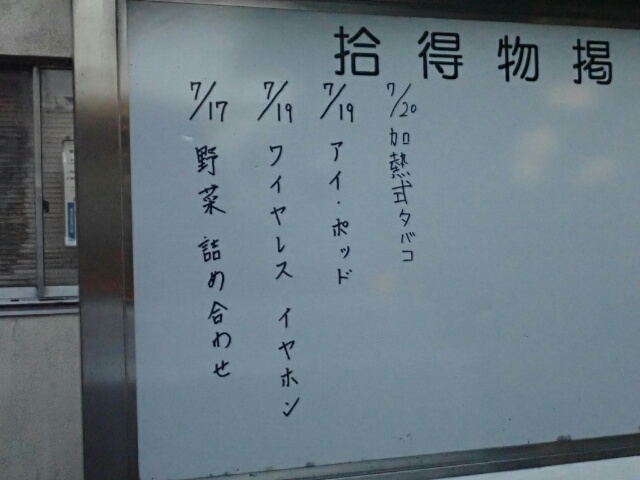 拾得物掲
7/20 加熱式タバコ
7/19 アイ・ポッド
7/19 ワイヤレス イヤホン
7/17 野菜 詰め合わせ